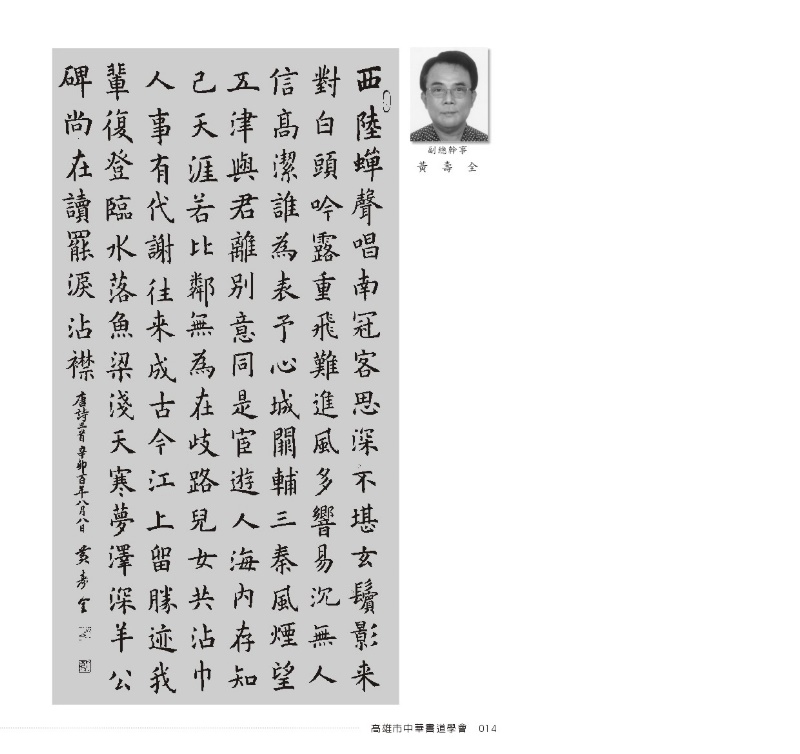 西陸蟬聲唱南冠客思深不堪玄鬢影来
對白頭吟露重飛難進風多響易沉無人
信高潔誰為表予心城闕輔三秦風煙望
五津與君離別意同是宦遊人海內存知
己天涯若比鄰無為在歧路兒女共沾巾
人事有代謝往来成古今江上留勝迹我
輩復登臨水落魚梁淺天寒夢澤深羊公
碑尚在讀罷淚沾襟
唐詩三首辛卯百年八月八日 黃壽全
副總幹事
黃壽全
高雄市中華書道學會 014